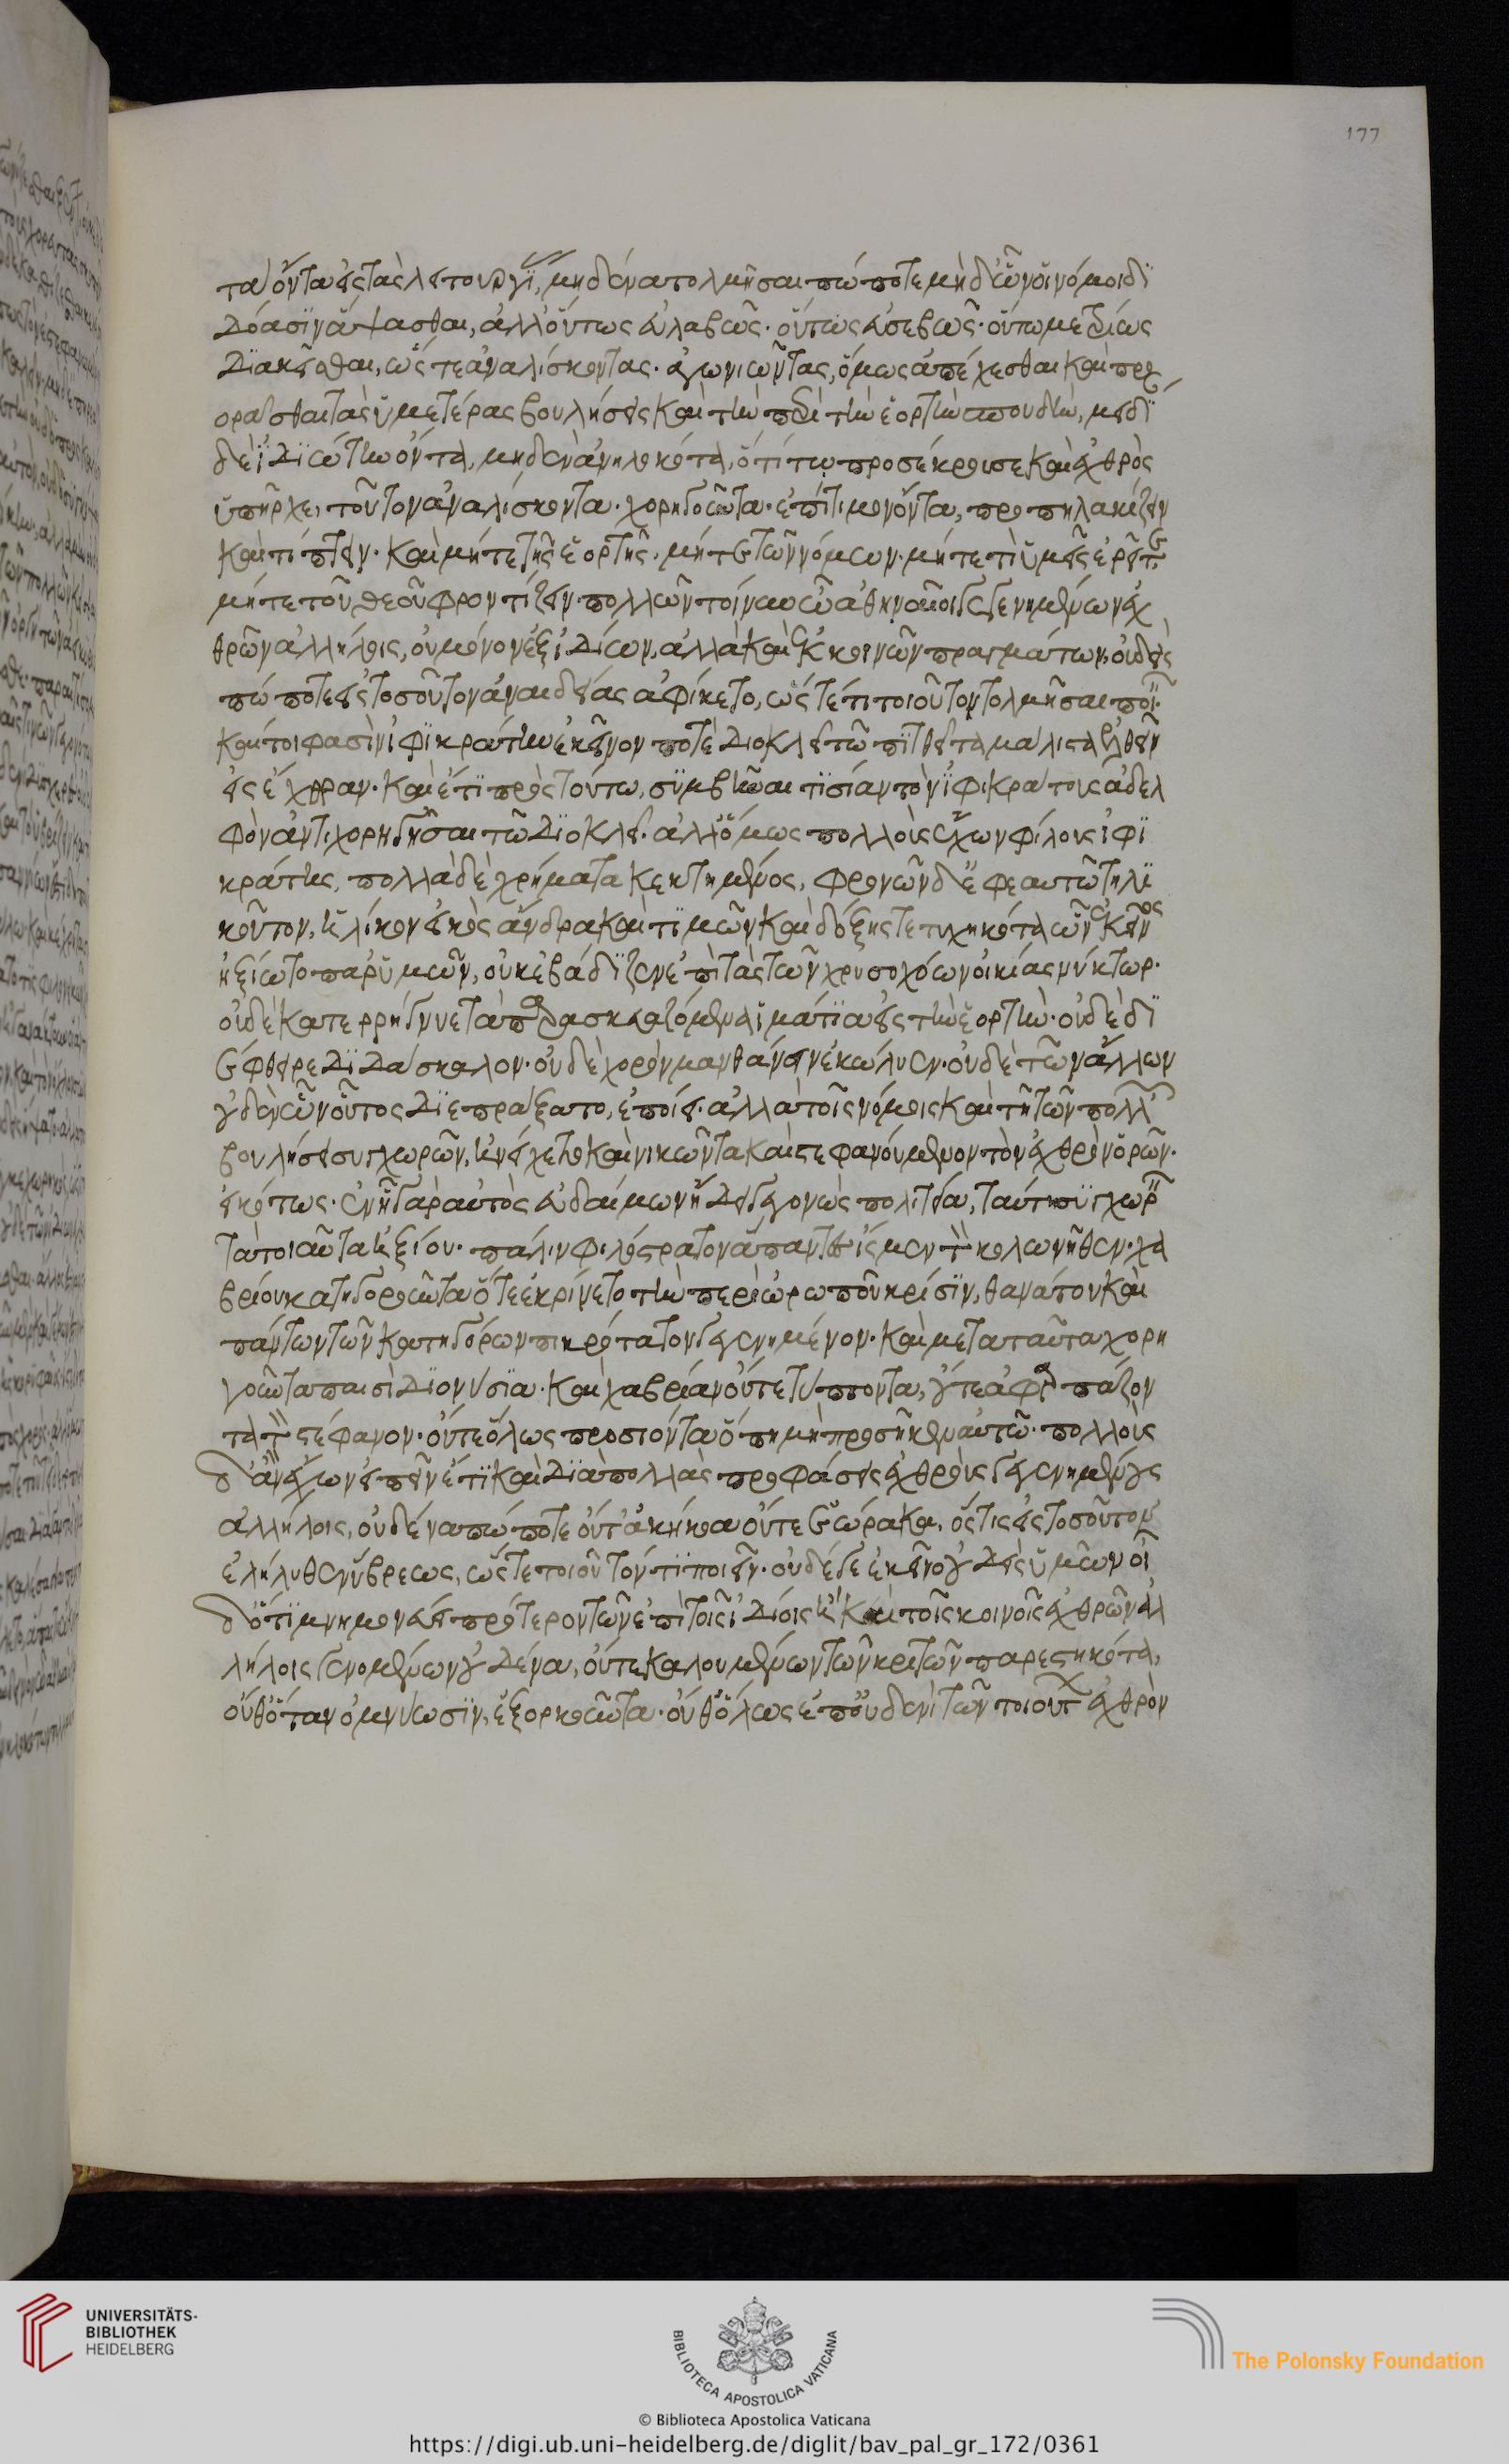 τα ὄντα εἰς τὰς λειτουργί, μηδένα τολμῆσαι πώποτε μηδ' ὧν οἱ νόμοι δι
δόασιν ἅψασθαι, ἀλλ' οὕτως εὐλαβῶς· οὕτως εὐσεβῶς· οὕτω μετρίως
διακεῖσθαι, ὥστε ἀναλίσκοντας· ἀγωνιῶντας, ὅμως ἀπέχεσθαι καὶ προ
ορᾶσθαι τὰς ὑμετέρας βουλήσεις καὶ τὴν περὶ τὴν ἑορτὴν σπουδὴν, μειδί
δὲ ἰδιώτην ὄντα, μηδὲν ἀνηλωκότα, ὅτι τῳ προσέκρουσε καὶ ἐχθρὸς
ὑπῆρχε, τοῦτον ἀναλίσκοντα· χορηγοῦντα· ἐπίτιμον ὄντα, προπηλακίζειν
καὶ τύπτειν· καὶ μήτε τῆς ἑορτῆς· μήτε τῶν νόμων· μήτε τί ὑμεῖς ἐρεῖτε
μήτε τοῦ θεοῦ φροντίζειν· πολλῶν τοίνυν ὦ ἀθηναῖοι γεγενημένων ἐχ
θρῶν ἀλλήλοις, οὐ μόνον ἐξ ἰδίων, ἀλλὰ καὶ ἐκ κοινῶν πραγμάτων, οὐδεὶς
πώποτε εἰς τοσοῦτον ἀναιδείας ἀφίκετο, ὥστέ τι τοιοῦτον τολμῆσαι ποι
καίτοι φασὶν ἰφικράτην ἐκεῖνον ποτὲ διοκλεῖ τῷ πιτθεῖ τὰ μάλιστα ἐλθεῖν
εἰς ἔχθραν· καὶ ἔτι πρὸς τούτῳ, συμβῆναι τισίαν τὸν ἰφικράτους ἀδελ
φὸν ἀντιχορηγῆσαι τῷ διοκλεῖ· ἀλλ' ὅμως πολλοὺς ἔχων φίλους ἰφι
κράτης, πολλὰ δὲ χρήματα κεκτημένος, φρονῶν δ' ἐφ' ἑαυτῷ τηλι
κοῦτον, ἡλίκον εἰκὸς ἄνδρα καὶ τιμῶν καὶ δόξης τετυχηκότα ὧν ἐκεῖνος
ἠξίωτο παρ' ὑμῶν, οὐκ ἐβάδιζεν ἐπὶ τὰς τῶν χρυσοχόων οἰκίας νύκτωρ·
οὐδὲ κατερρήγνυε τὰ παρασκευαζόμενα ἱμάτια εἰς τὴν ἑορτὴν· οὐδὲ δι
έφθειρε διδάσκαλον· οὐδὲ χορὸν μανθάνειν ἐκώλυεν· οὐδὲ τῶν ἄλλων
οὐδὲν ὧν οὗτος διεπράξατο, ἐποίει· ἀλλὰ τοῖς νόμοις καὶ τῇ τῶν πολλ
βουλήσει συγχωρῶν, ἠνείχετο καὶ νικῶντα καὶ στεφανούμενον τὸν ἐχθρὸν ὁρῶν·
εἰκότως· ἐν ᾗ γὰρ αὐτὸς εὐδαίμων ᾔδει γεγονὼς πολιτείᾳ, ταύτῃ συγχωρ
τὰ τοιαῦτα ἠξίου· πάλιν φιλόστρατον ἅπαντες ἴσμεν τὸν κολωνῆθεν· χα
βρίου κατηγοροῦντα ὅτε ἐκρίνετο τὴν περὶ ὠρωποῦ κρίσιν, θανάτου καὶ
πάντων τῶν κατηγόρων πικρότατον γεγενημένον· καὶ μετὰ ταῦτα χορη
γοῦντα παισὶ διονύσια· καὶ χαβρίαν οὔτε τύπτοντα, οὔτε ἀφαρπάζον
τα τὸν στέφανον· οὔτε ὅλως προσιόντα ὅπη μὴ προσῆκεν αὐτῷ· πολλοὺς
δ' ἂν ἔχων εἰπεῖν ἔτι καὶ διὰ πολλὰς προφάσεις ἐχθροὺς γεγενημένους
ἀλλήλοις, οὐδένα πώποτε οὔτ' ἀκήκοα οὔτε ἑώρακα, ὅστις εἰς τοσοῦτον
ἐλήλυθεν ὕβρεως, ὥστε τοιοῦτόν τι ποιεῖν· οὐδέ γε ἐκεῖνο οὐδεὶς ὑμῶν οἶ
δ' ὅτι μνημονεύει πρότερον τῶν ἐπὶ τοῖς ἰδίοις ἢ καὶ τοῖς κοινοῖς ἐχθρῶν ἀλ
λήλοις γενομένων οὐδένα, οὔτε καλουμένων τῶν κριτῶν παρεστηκότα,
οὔθ' ὅταν ὀμνύωσιν, ἐξορκοῦντα· οὔθ' ὅλως ἐπ' οὐδενὶ τῶν τοιούτ ἐχθρὸν
177
UNIVERSITÄTS-
BIBLIOTHEK
HEIDELBERG
BIBLIOTECA APOSTOLICA VATICANA
The Polonsky Foundation
© Biblioteca Apostolica Vaticana
https://digi.ub.uni-heidelberg.de/diglit/bav_pal_gr_172/0361